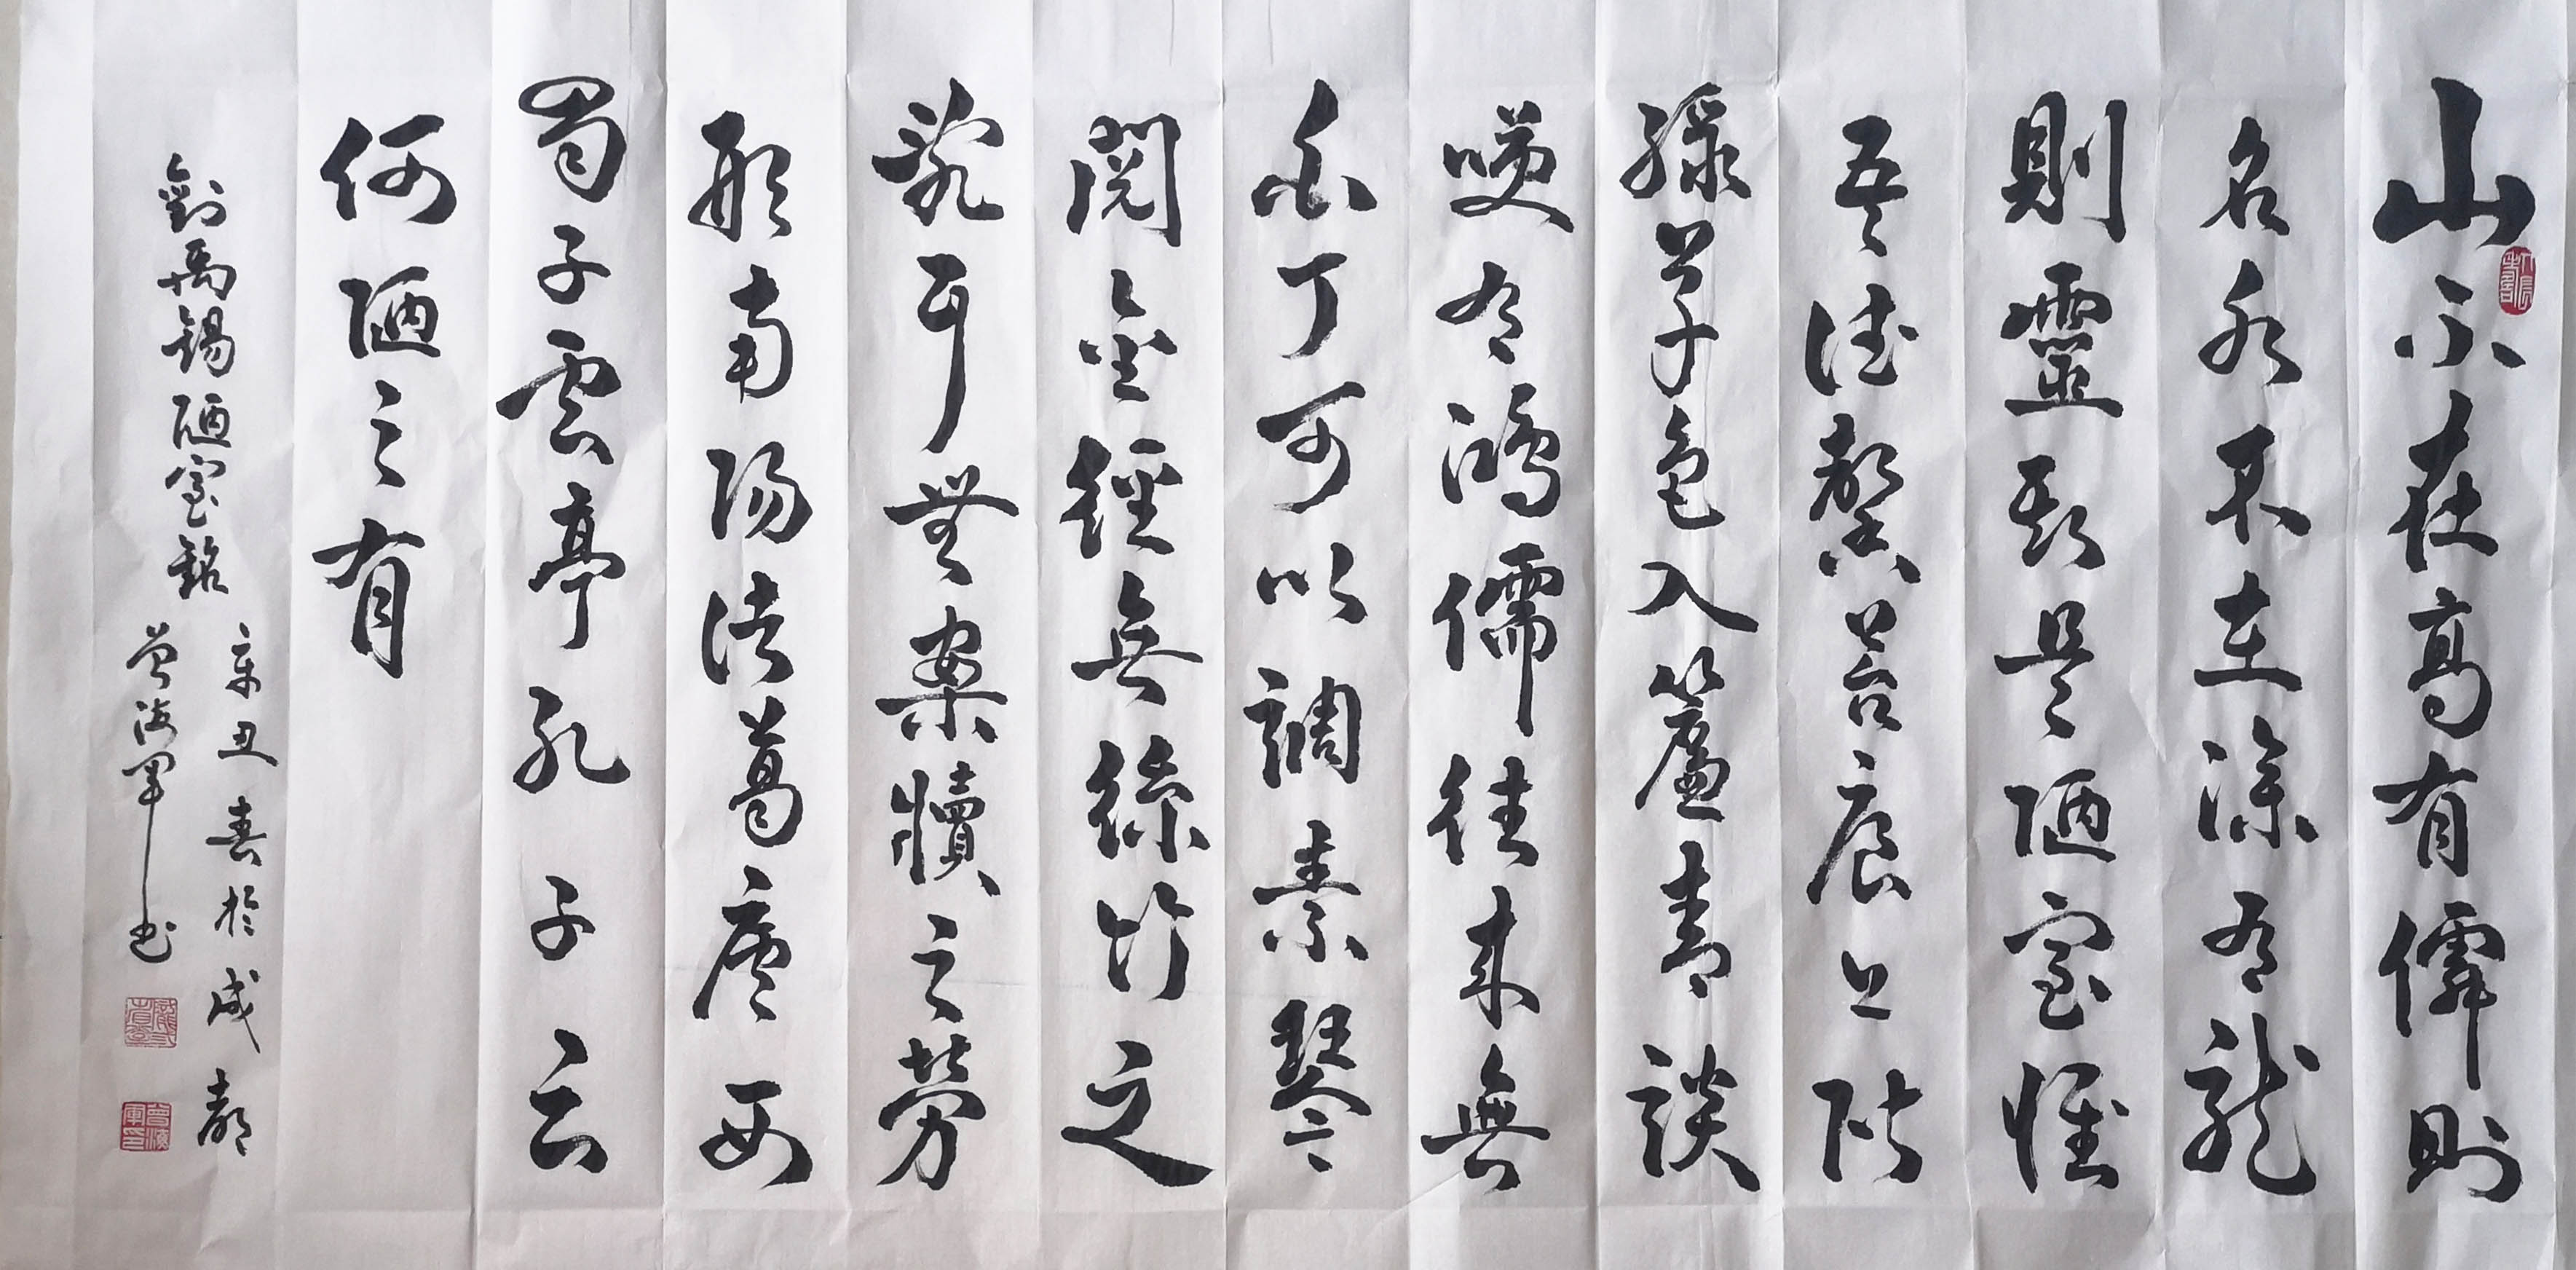 山不在高有僊則
名水不在深有龍
則靈斯是陋室惟
吾德馨苔痕上階
緑草色入簾青談
咲有鴻儒往來無
白丁可以調素琴
閱金經無絲竹之
亂耳無案牘之勞
形南陽諸葛廬西
蜀子雲亭孔子云
何陋之有
劉禹錫陋室銘
辛丑春於成都
曾海軍书